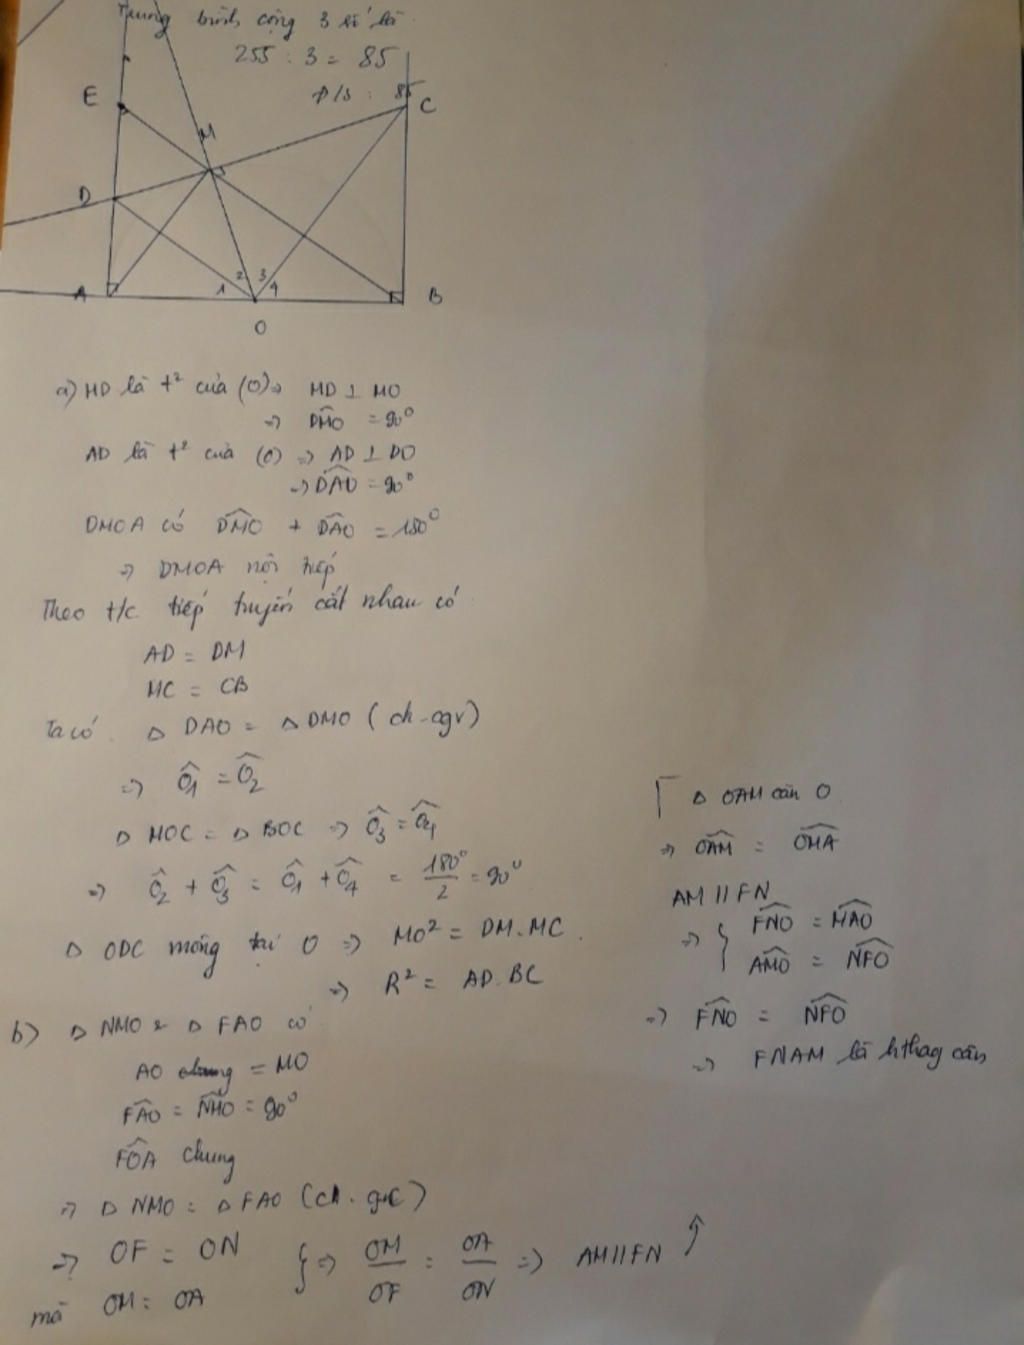 Trung bình cộng 3 số là
255 : 3 = 85
Đ/S : 85
E
C
M
D
2 3
1 4
A
B
O
a) MD là t² của (O) => MD ⊥ MO
=> DMO = 90°
AD là t² của (O) => AD ⊥ DO
=> DAO = 90°
DMOA có DMO + DAO = 180°
=> DMOA nội tiếp
Theo t/c tiếp tuyến cắt nhau có
AD = DM
MC = CB
Ta có Δ DAO = Δ DMO ( ch - cgv )
=> Ô1 = Ô2
Δ MOC = Δ BOC => Ô3 = Ô4
=> Ô2 + Ô3 = Ô1 + Ô4 = 180°/2 = 90°
Δ ODC vuông tại O => MO² = DM.MC
=> R² = AD.BC
b) Δ NMO & Δ FAO có
AO = MO
FAO = NMO = 90°
FOA chung
=> Δ NMO = Δ FAO
=> OF = ON
mà OM = OA
} => OM/OF = OA/ON => AM // FN
Δ OAM cân O
=> OAM = OMA
AM // FN
=> { FNO = MAO
AMO = NFO
=> FNO = NFO
=> FNAM là hthag cân